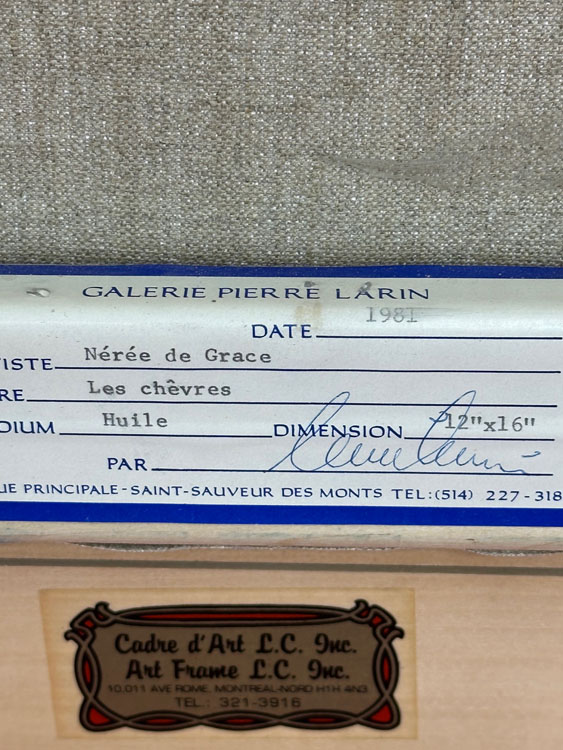 GALERIE PIERRE LARIN
DATE 1981
ISTE Nérée de Grace
RE Les chêvres
DIUM Huile DIMENSION 12"x16"
PAR
UE PRINCIPALE-SAINT-SAUVEUR DES MONTS TEL:(514) 227-318
Cadre d'Art L.C. Inc.
Art Frame L.C. Inc.
10,011 AVE ROME, MONTREAL-NORD H1H 4N3
TEL.: 321-3916